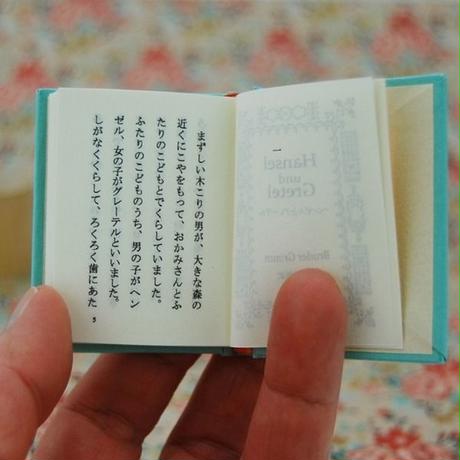 一
Hansel
und
Gretel
ヘンゼルとグレーテル
Bruder Grimm
まずしい木こりの男が、大きな森の
近くにこやをもって、おかみさんとふ
たりのこどもとでくらしていました。
ふたりのこどものうち、男の子がヘン
ゼル、女の子がグレーテルといいました。
しがなくくらして、ろくろく歯にあた
5